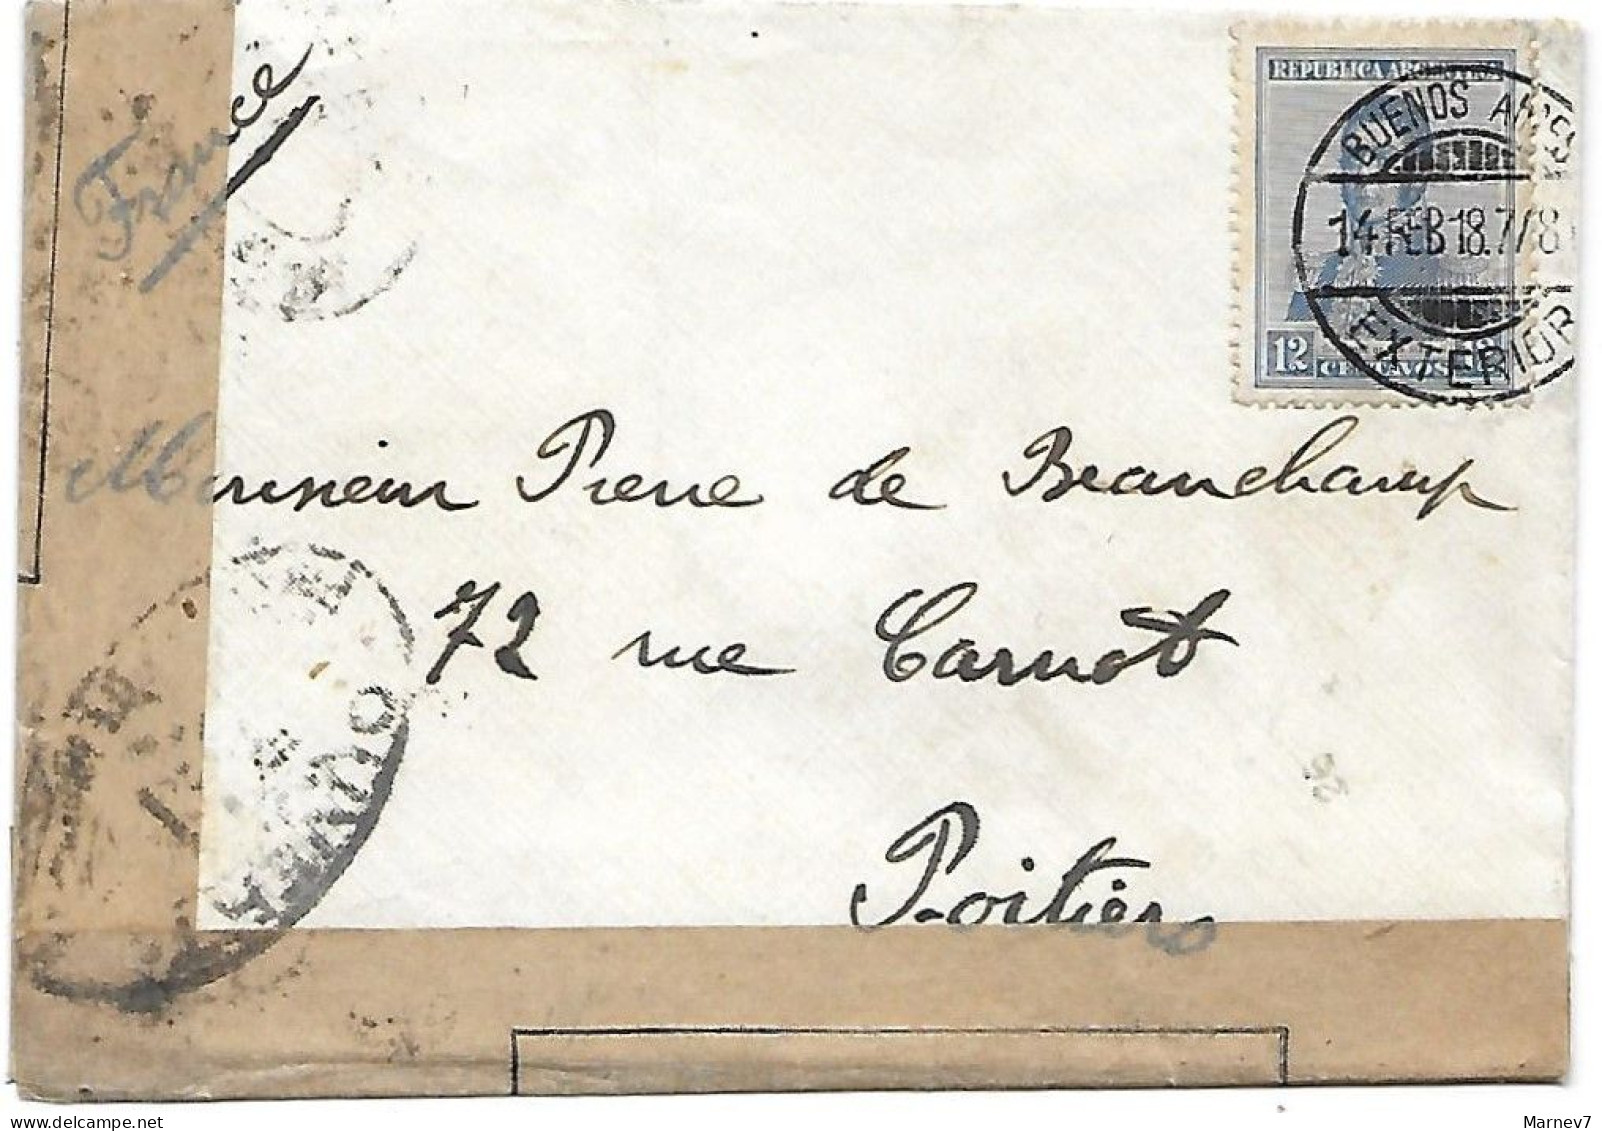 France
REPUBLICA ARGENTINA
BUENOS AIRES
14 FEB 18. 7/8
EXTERIOR
12 CENTAVOS 12
Monsieur Pierre de Beauchamp
72 rue Carnot
Poitiers
Marnev7